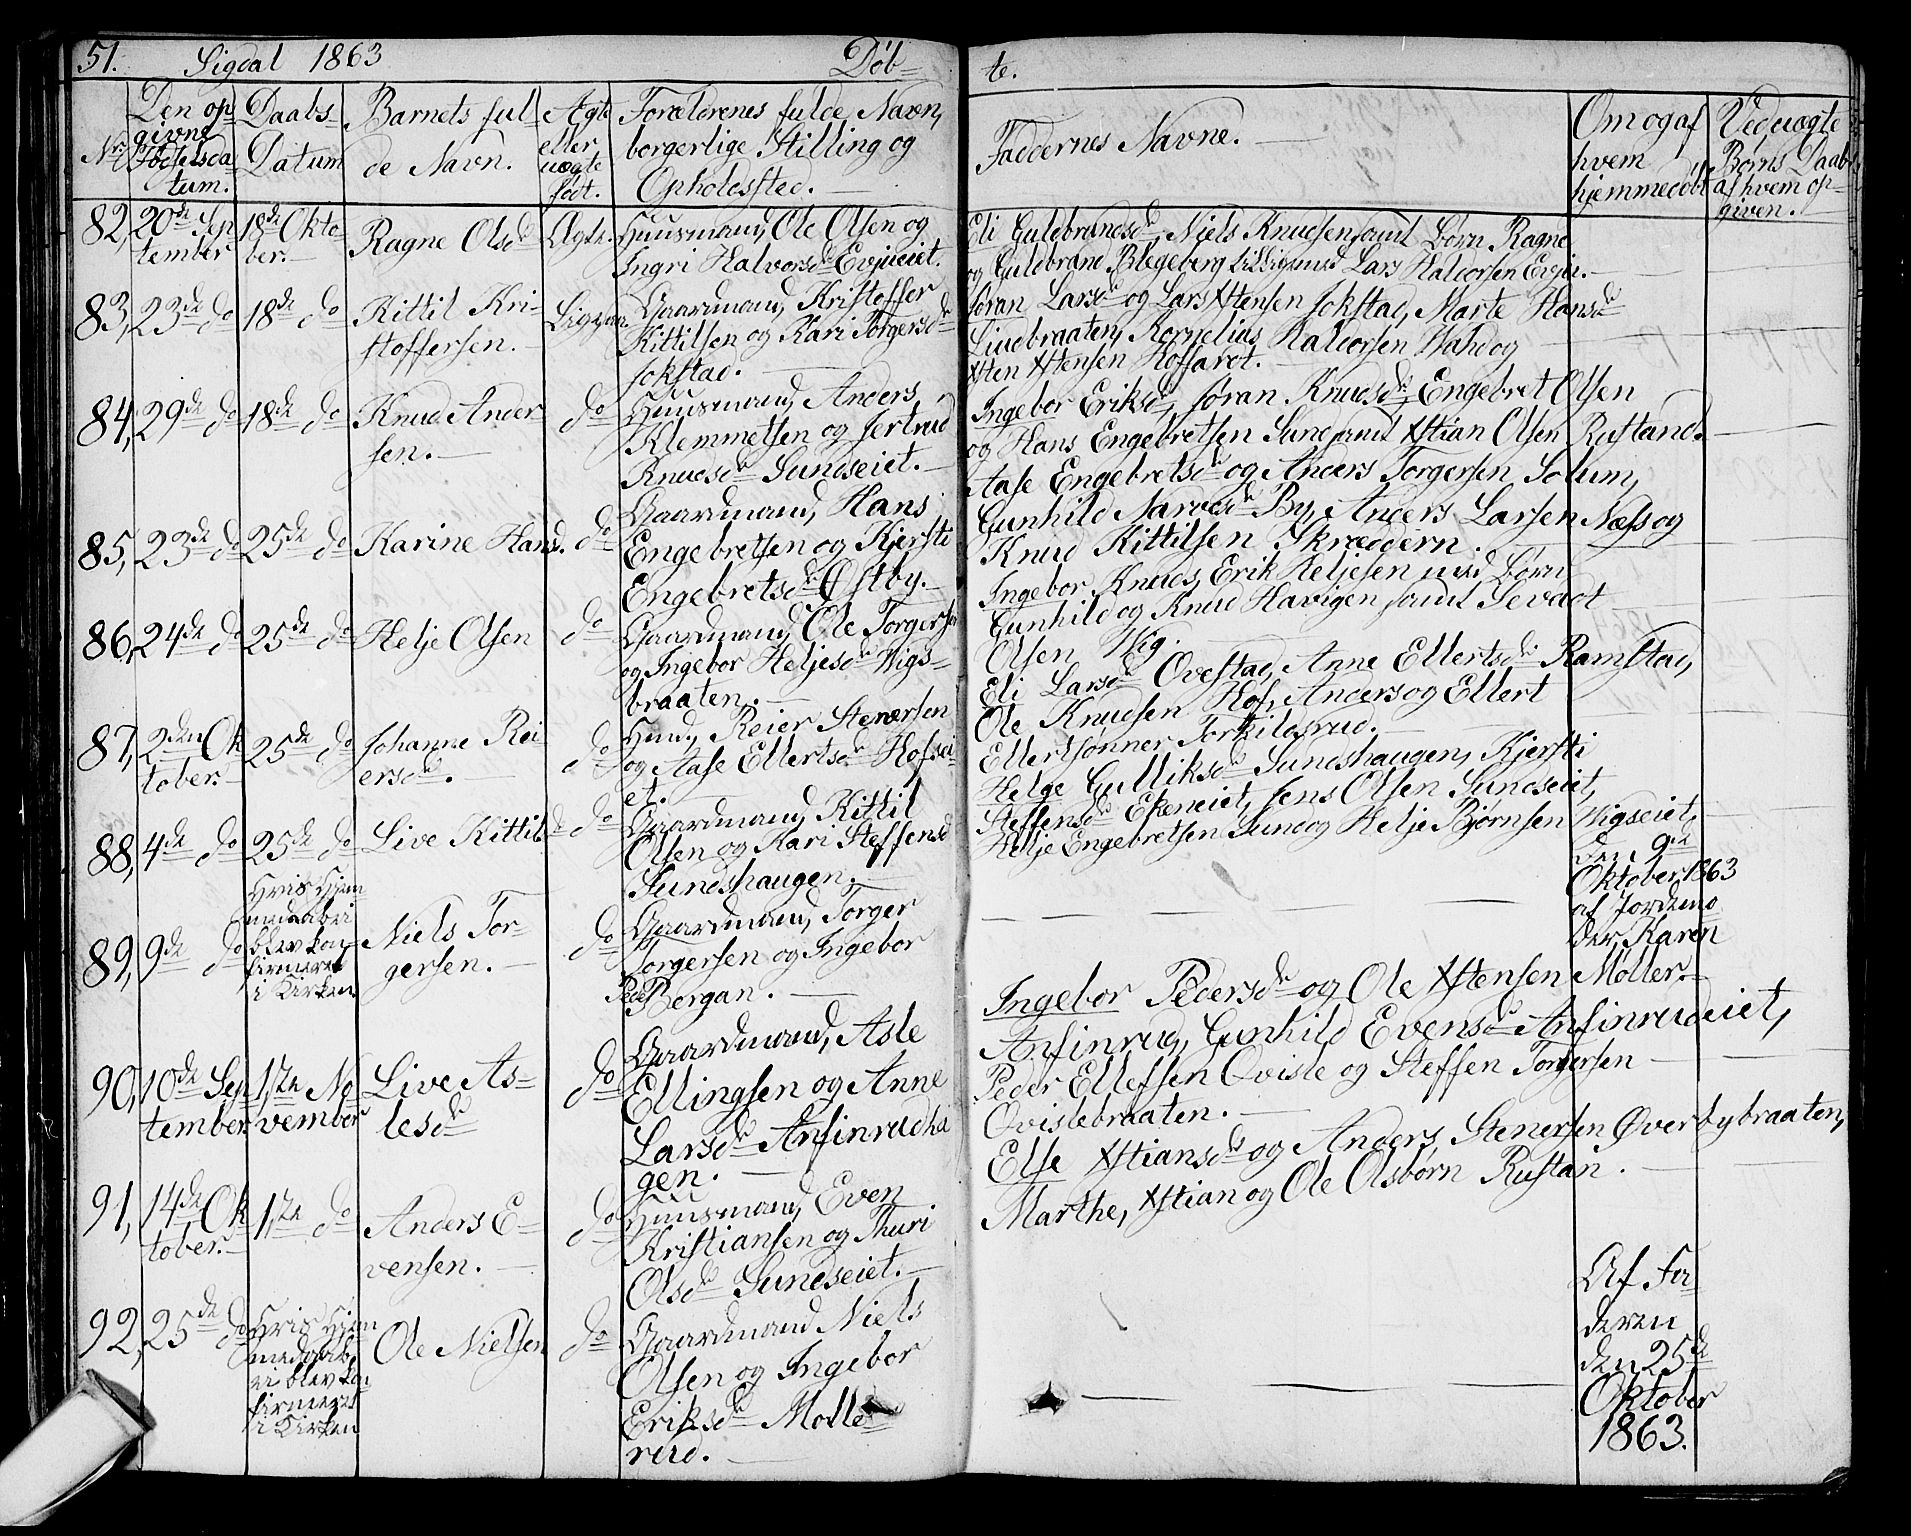 51. Sigdal 1863 Døb-
te.
Nr.
Den op-
givne
Fødselsda-
tum.
Daabs-
Datum
Barnets ful-
de Navn.
Ægte
eller
uægte
født.
Forældrenes fulde Navn,
borgerlige Stilling og
Opholdssted.
Faddernes Navne.
Om og af
hvem
hjemmedøbt
Ved uægte
Børns Daab
af hvem op-
given.
82, 20de Sep
tember
18de Okto
ber.
Ragne Olsd
Ægte.
Huusmand, Ole Olsen og
Ingri Halvorsd Evjueiet.
Eli Guldbrandsd, Niels Knudsen samt Børn Ragne
og Guldbrand Blegeberg tilligemed Lars Halvorsen Evju.
83, 23de do
18de do
Kittil Kri-
stoffersen.
Ligesaa
Gaardmand, Kristoffer
Kittilsen og Kari Torgersd
Jokstad.
Jøran Larsd og Lars Xstensen Jokstad, Marte Hansd
Lindbraaten, Kornelius Halvorsen Wahd og
Xsten Xstensen Hoffaret.
84, 29de do
18de do
Knud Ander
sen.
do
Huusmand, Anders
Klemmetsen og Jertrud
Knudsd Sundseiet.
Ingebor Eriksd, Jøran Knudsd, Engebret Olsen
og Hans Engebretsen Sund samt Xstian Olsen Rustand.
85, 23de do
25de do
Karine Hansd.
do
Gaardmand, Hans
Engebretsen og Kjersti
Engebretsd Østby.
Aase Engebretsd og Anders Torgersen Solum,
Gunhild Narvesd By, Anders Larsen Næss og
Knud Kittilsen Skræddern.
86, 24de do
25de do
Helje Olsen
do
Gaardmand, Ole Torgersen
og Ingebor Heljesd Wigs-
braaten.
Ingebor Knuds, Erik Heljesen med Børn
Gunhild og Knud Havigen samt Sevadt
Olsen Wig
87, 2den Ok
tober.
25de do
Johanne Rei
ersd.
do
Huud, Reier Stenersen
og Aase Ellertsd Hofsei-
et.
Eli Larsd Ovestad, Anne Ellertsd Ramstad,
Ole Knudsen Hof, Anders og Ellert
Ellertsønner Torkildsrud.
88, 4de do
25de do
Live Kittilsd
do
Gaardmand, Kittil
Olsen og Kari Steffensd
Sundshaugen.
Helge Gulliksd Sundshaugen, Kjersti
Steffensd Ekeneiet, Jens Olsen Sundseiet,
Helje Engebretsen Sund og Helje Bjørnsen Wigseiet,
89, 9de do
Hvis Hjem
medaab ei
blev kon-
firmeret
i Kirken
Niels Tor-
gersen.
do
Gaardmand, Torger
Torgersen og Ingebor
Ped Bergan.
den 9de
Oktober 1863
af Jordemo
der, Karen
Møller.
90, 10de Sep
tember.
1ste No
vember
Live As-
lesd
do
Gaardmand, Asle
Ellingsen og Anne
Larsd Anfinrudha
gen.
Ingebor Pedersd og Ole Xstensen
Anfinrud, Gunhild Evensd Anfinrudeiet,
Peder Ellefsen Qvisle og Steffen Torgersen
Qvislebraaten.
91, 14de Ok
tober.
1ste do
Anders E-
vensen.
do
Huusmand, Even
Kristiansen og Thuri
Olsd Sundseiet.
Else Xstiansd og Anders Stenersen Øverbybraaten,
Marthe, Xstian og Ole Olsbørn Rustan.
92, 25de do
Hvis Hjem
medaab
ei blev kon
firmeret
i Kirken
Ole Nielsen
do
Gaardmand Niels
Olsen og Ingebor
Eriksd Molle-
rud.
Af Fa-
deren
den 25de
Oktober
1863.